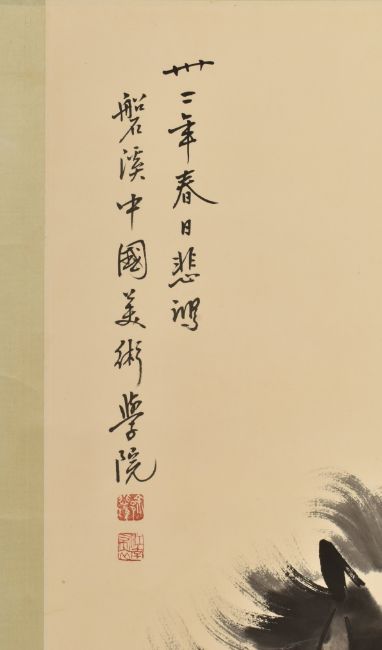 卅二年春日悲鴻
磐溪中國美術學院